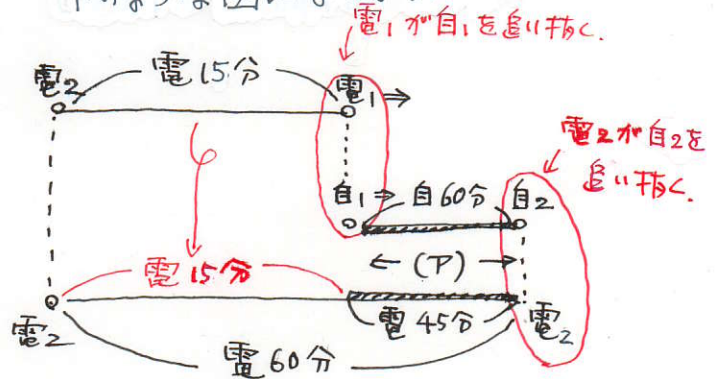 電1が自1を追い抜く.
電2
電15分
電1⇒
電2が自2を
追い抜く.
自1⇒
自60分
自2
電15分
←(ア)→
電2
電45分
電2
電60分